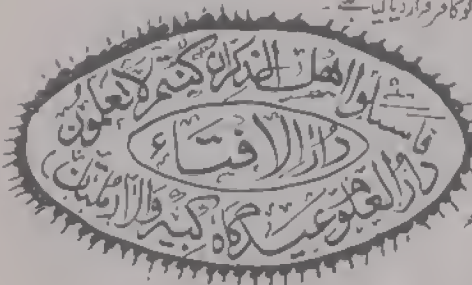 کو کافر قرار دیا گیا ہے۔
فاسئلوا اھل الذکر ان کنتم لا تعلمون
دار الافتاء
دار العلوم عید گاہ کبیر والا (ملتان)